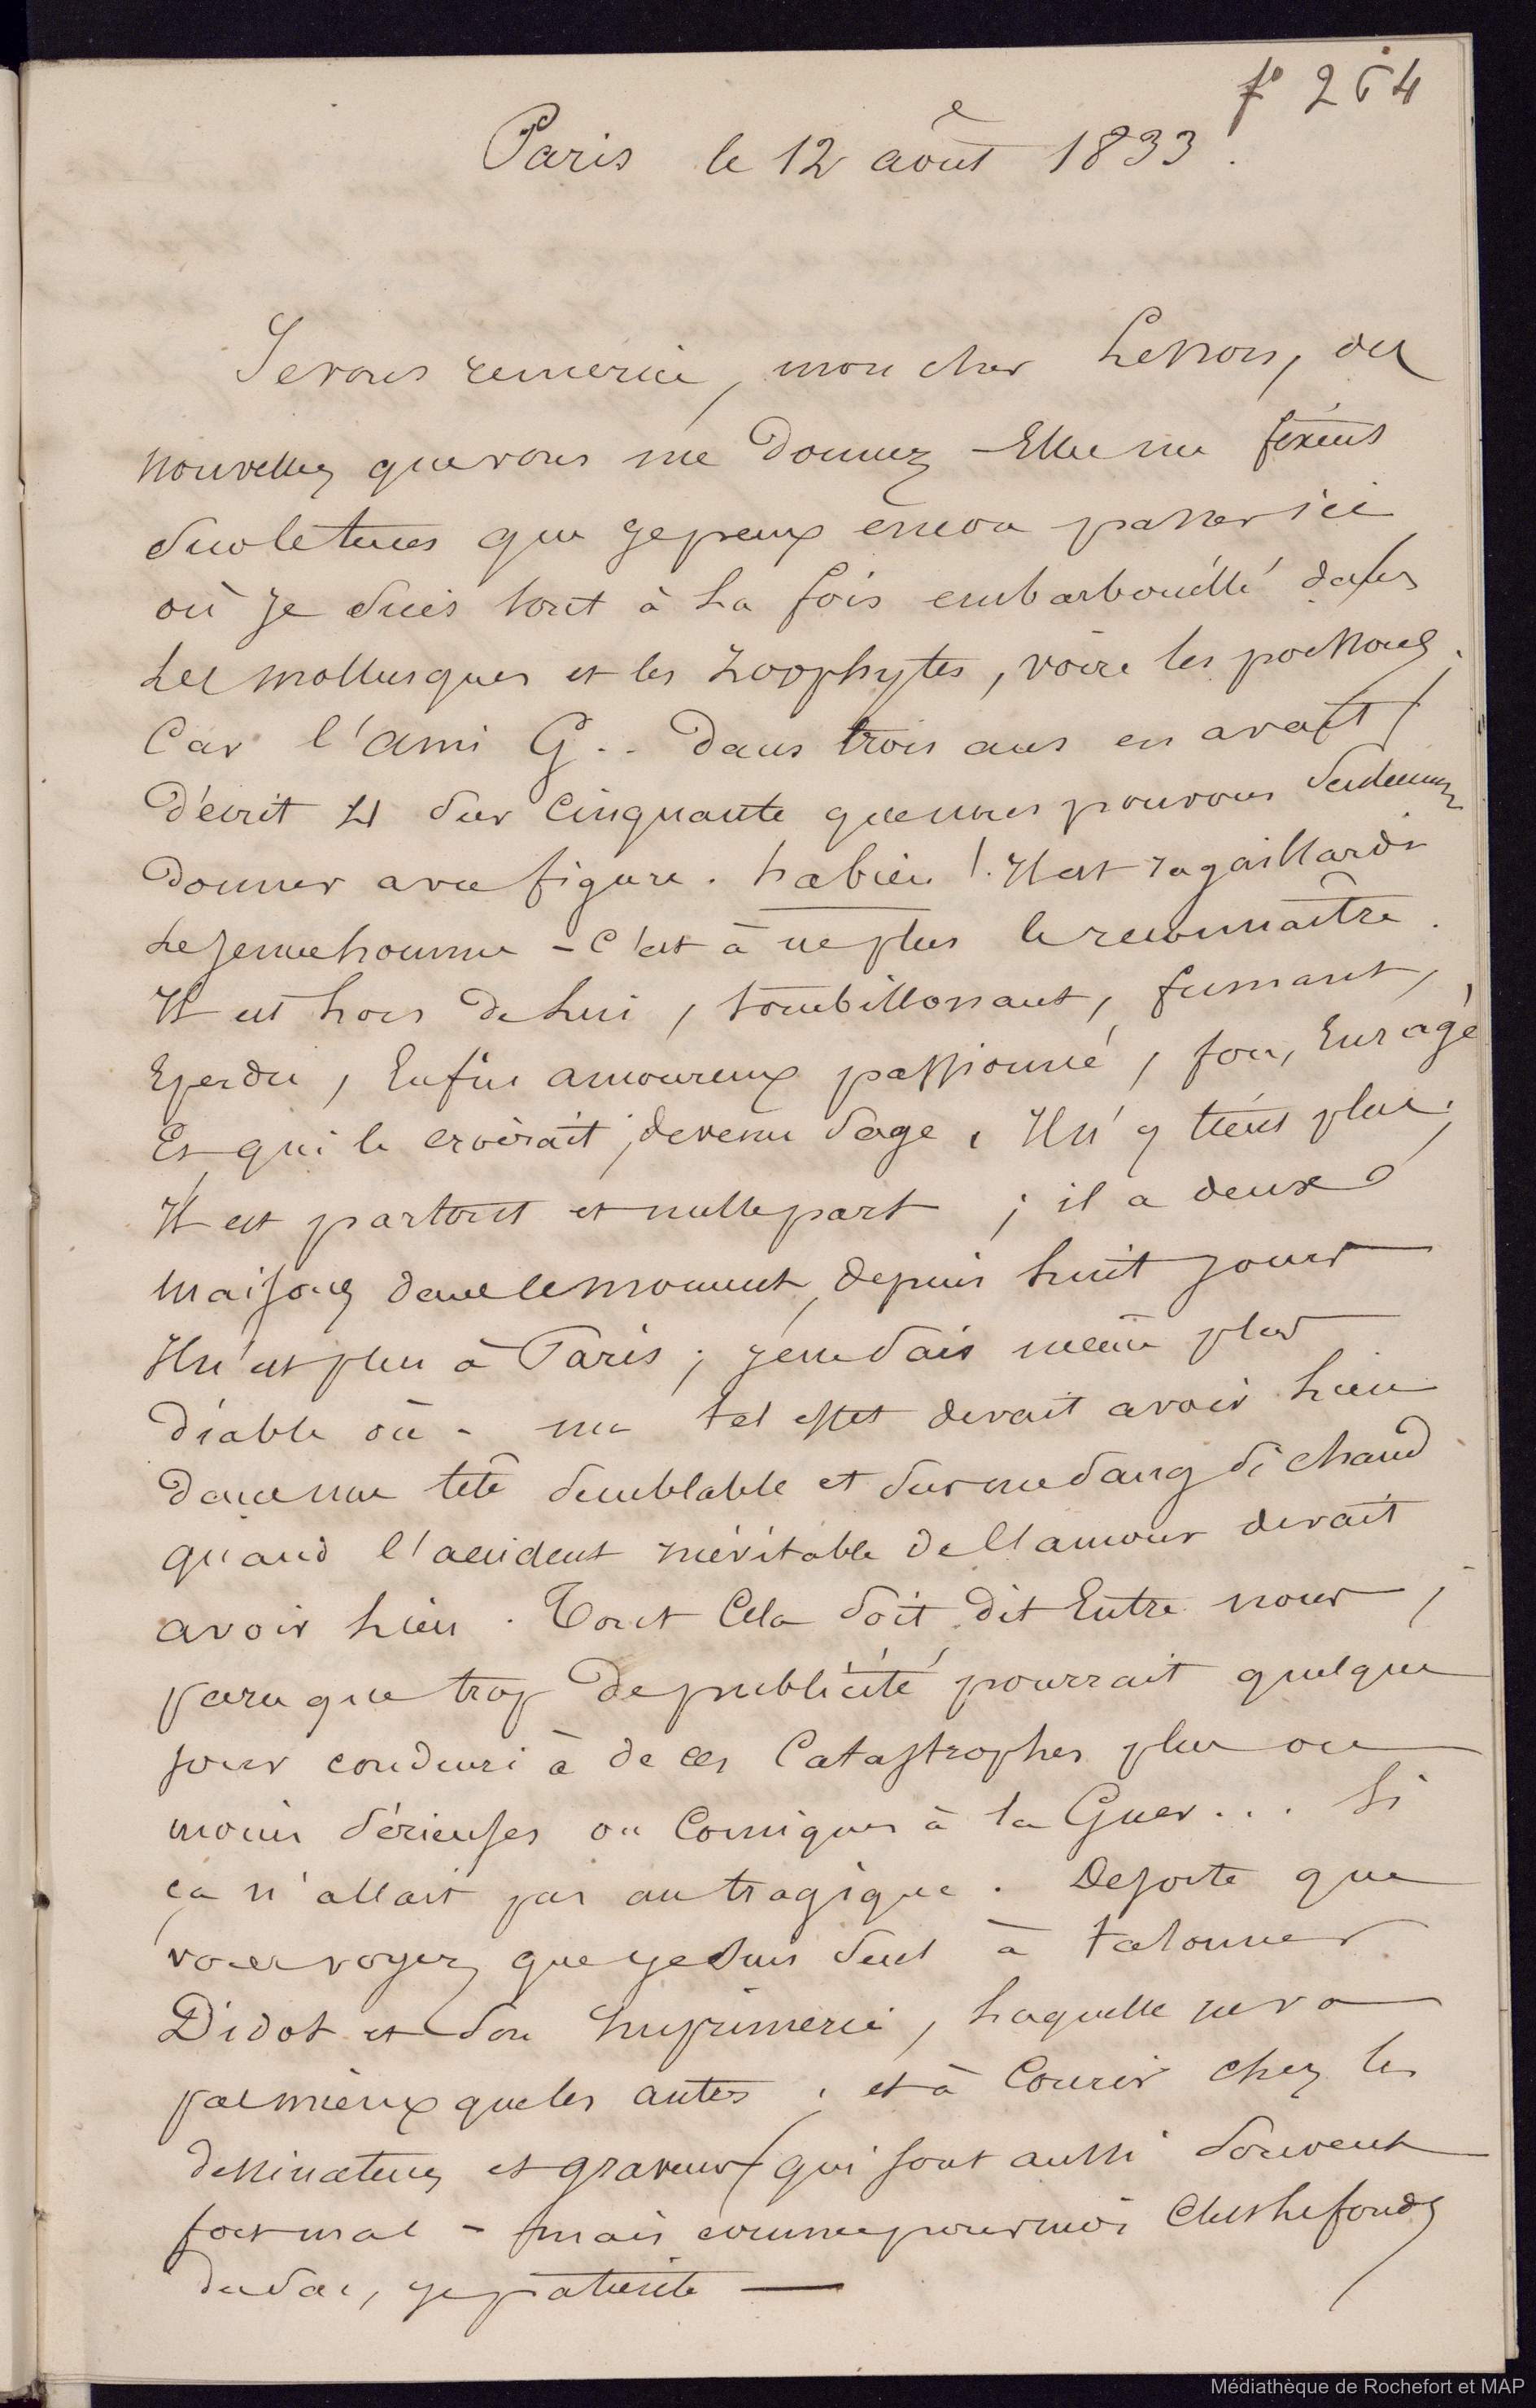 fo 264
Paris le 12 août 1833.
Je vous remercie, mon cher Lesson, des
nouvelles que vous me donnez - Elle me fixent
sur le tems que je peux encore passer ici
où je suis tout à la fois embarbouillé dans
les mollusques et les zoophytes, voire les poissons.
Car l'ami G.. dans trois ans en avait
décrit 4 sur cinquante que nous pouvons seulement
donner avec figure. ha bien! Il est ragaillardi
le jeune homme - c'est à ne plus le reconnaître.
Il est hors de lui, tourbillonnant, fumant,
Eperdu, Enfin amoureux passionné, fou, Enragé
Et qui le croirait, devenu sage. Il n'y tient plus,
Il est partout et nulle part ; il a deux
maisons dans le moment, depuis huit jours
Il n'est plus à Paris ; je ne sais même plus
diable où - un tel effet devait avoir lieu
dans une tête semblable et sur un sang si chaud
quand l'accident inévitable de l'amour devait
avoir lieu. Tout Cela soit dit Entre nous,
parce que trop de publicité pourrait quelque
jour conduire à de ces Catastrophes plus ou
moins sérieuses ou Comiques à la Guer... Si
ça n'allait pas au tragique. De sorte que
vous voyez que je suis seul à talonner
Didot et son Imprimerie, laquelle ne va
pas mieux que les autres, et à Courir chez les
dessinateurs et graveurs qui sont aussi souvent
fort mal - mais comme pour moi C'est le fonds
du sac, je patiente —
Médiathèque de Rochefort et MAP